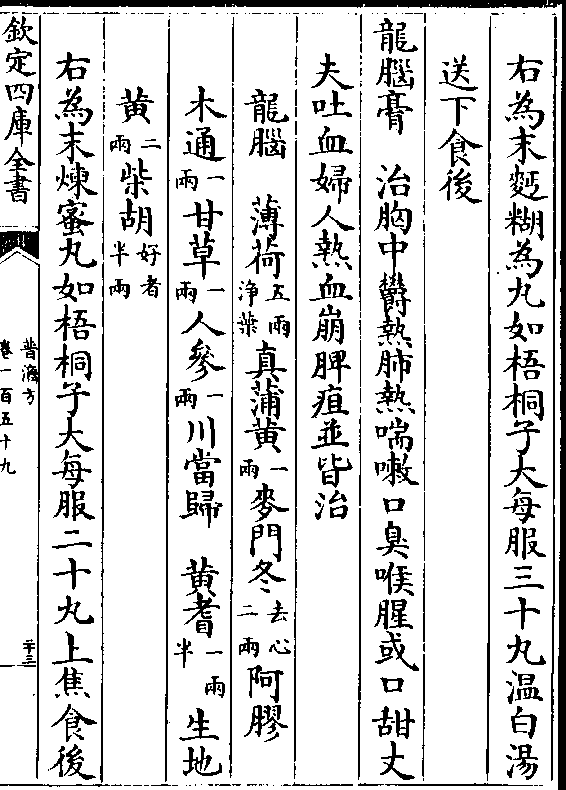 右為末麫糊為丸如梧桐子大每服三十丸温白湯
送下食後
龍腦膏　治胸中欝熱肺熱喘嗽口臭喉腥或口甜丈
夫吐血婦人熱血崩脾疸並皆治
龍腦　薄荷五兩淨葉真蒲黄一兩麥門冬去心二兩阿膠
木通一兩甘草一兩人參一兩川當歸　黄耆一兩半生地
黄二兩柴胡好者半兩
右為末煉蜜丸如梧桐子大每服二十丸上焦食後
欽定四庫全書
普濟方
卷一百五十九
二十三